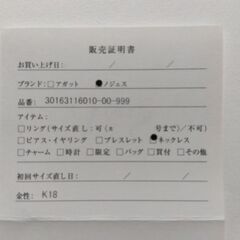 販売証明書
お買い上げ日： / /
ブランド：□アガット ●ノジェス
品番： 30163116010-00-999
アイテム：
□リング（サイズ直し：可（＃ 号まで）／不可）
□ピアス・イヤリング □ブレスレット ●ネックレス
□チャーム □時計 □限定 □バッグ □買付 □その他
初回サイズ直し日 / /
金性： K18